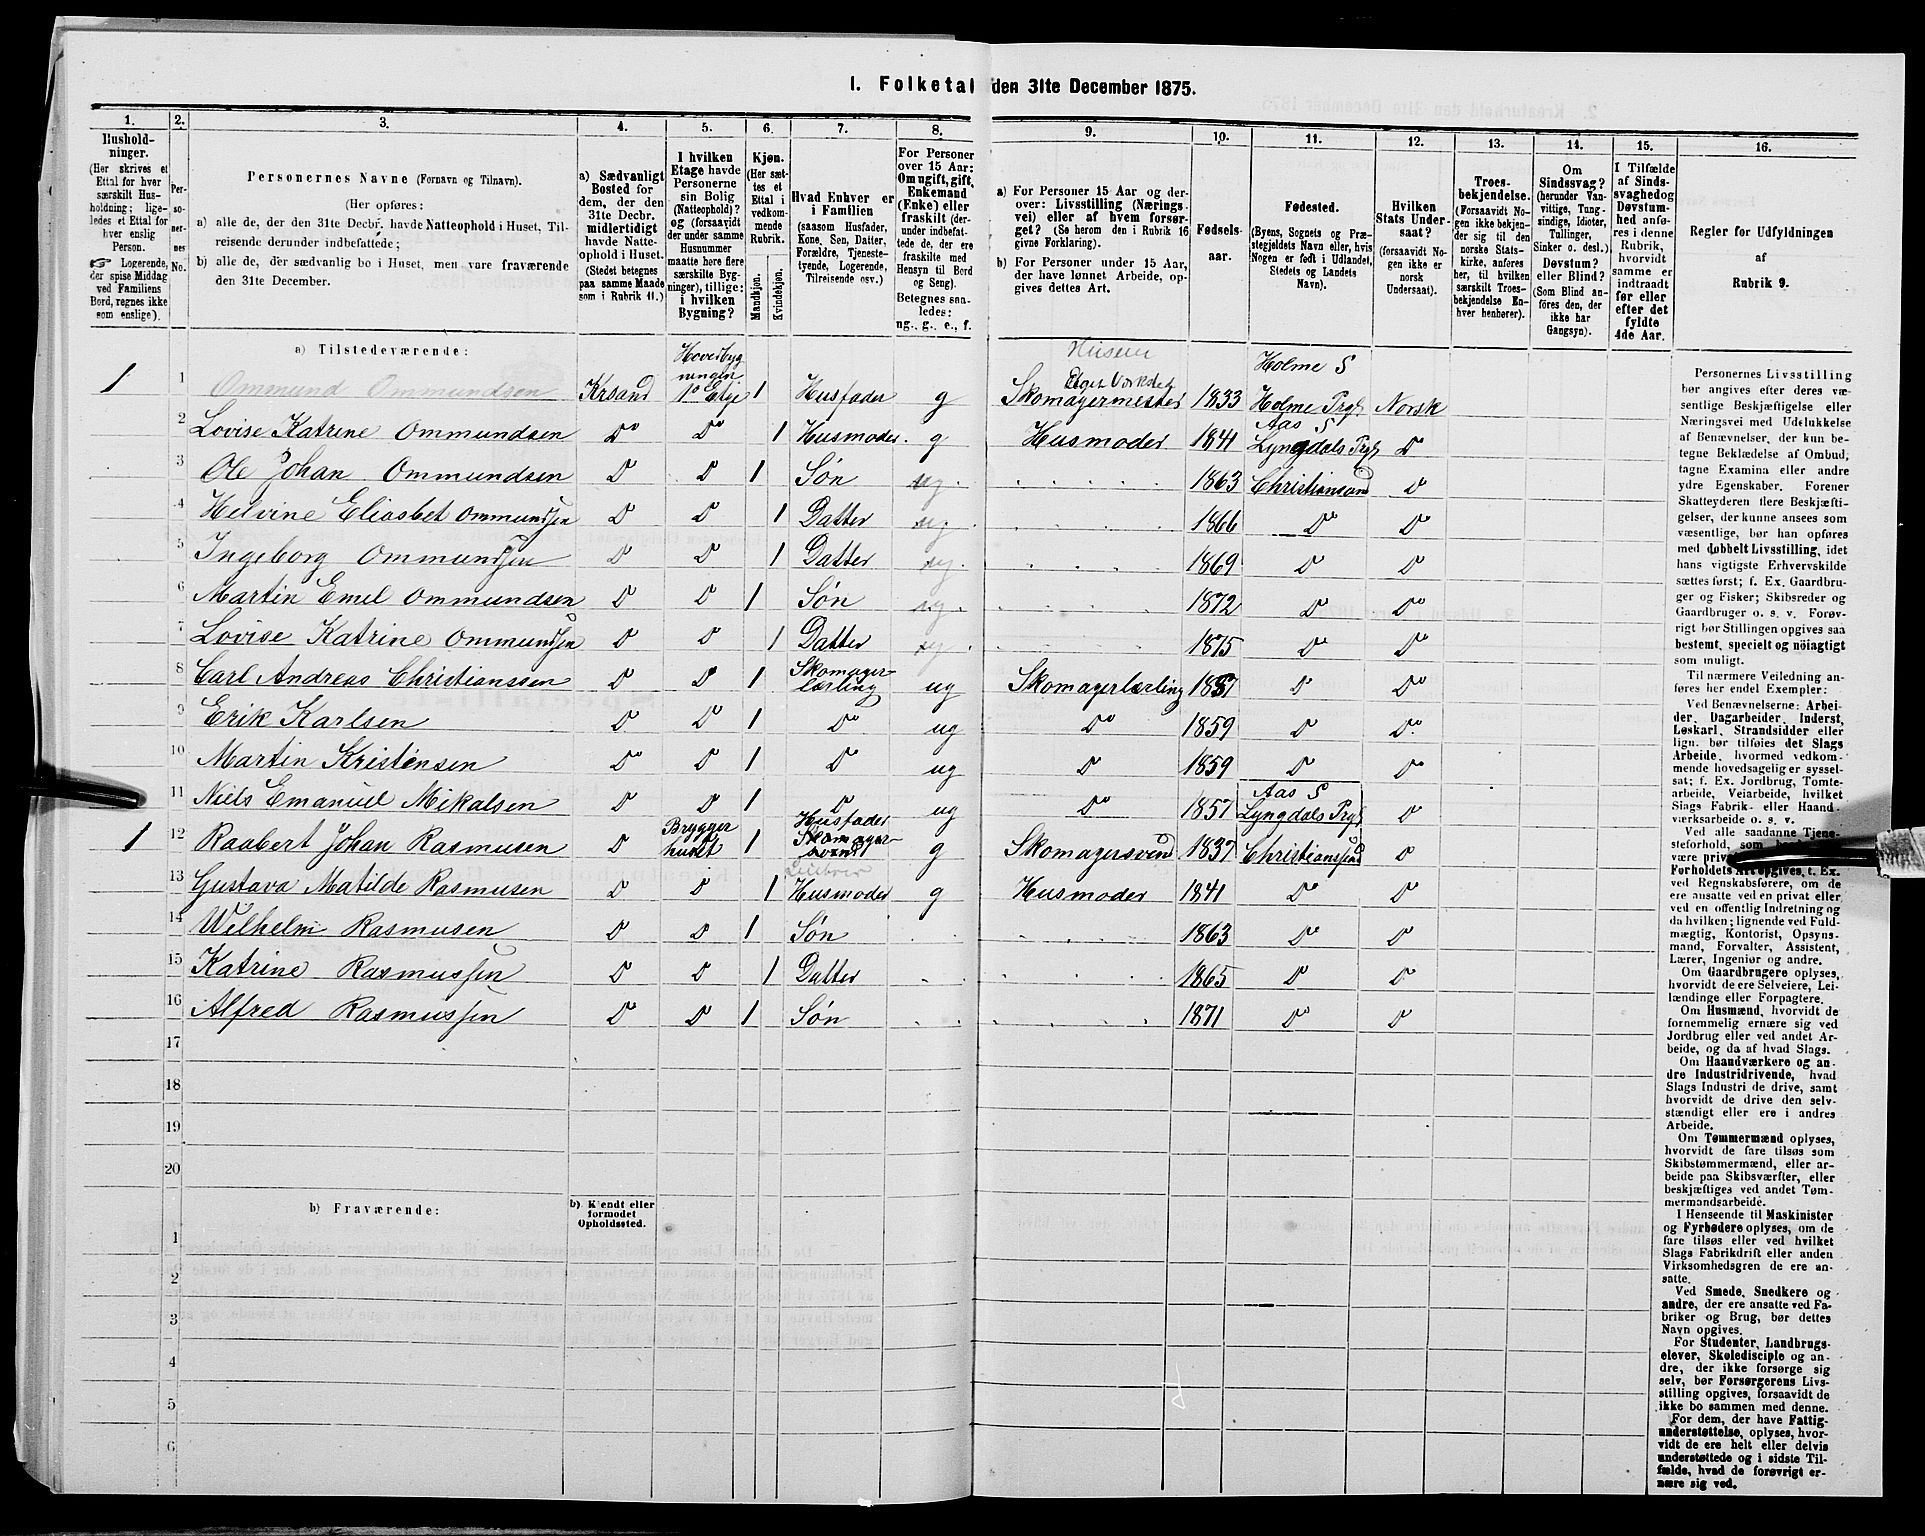 I. Folketal den 31te December 1875.
1. 2. 3. 4. 5. 6. 7. 8. 9. 10. 11. 12. 13. 14. 15. 16.
Hushold-
ninger.
(Her skrives et
Ettal for hver
særskilt Hus-
holdning; lige-
ledes et Ettal for
hver enslig
Person.
☞ Logerende,
der spise Middag
ved Familiens
Bord, regnes ikke
som enslige).
Per-
so-
ner-
nes
No.
Personernes Navne (Fornavn og Tilnavn).
(Her opføres:
a) alle de, der den 31te Decbr. havde Natteophold i Huset, Til-
reisende derunder indbefattede;
b) alle de, der sædvanlig bo i Huset, men vare fraværende
den 31te December.
a) Sædvanligt
Bosted for
dem, der den
31te Decbr.
midlertidigt
havde Natte-
ophold i Huset.
(Stedet betegnes
paa samme Maade
som i Rubrik 11.)
I hvilken
Etage havde
Personerne
sin Bolig
(Natteophold)?
og (forsaavidt
der under samme
Husnummer
maatte høre flere
særskilte Byg-
ninger), tillige:
i hvilken
Bygning?
Kjøn.
(Her sæt-
tes et
Ettal i
vedkom-
mende
Rubrik.
Mandkjøn.
Kvindekjøn.
Hvad Enhver er
i Familien
(saasom Husfader,
Kone, Søn, Datter,
Forældre, Tjeneste-
tyende, Logerende,
Tilreisende osv.)
For Personer
over 15 Aar:
Om ugift, gift,
Enkemand
(Enke) eller
fraskilt (der-
under indbefat-
tede de, der ere
fraskilte med
Hensyn til Bord
og Seng).
Betegnes saa-
ledes:
ug., g., e., f.
a) For Personer 15 Aar og der-
over: Livsstilling (Nærings-
vei) eller af hvem forsør-
get? (Se herom den i Rubrik 16
givne Forklaring).
b) For Personer under 15 Aar,
der have lønnet Arbeide, op-
gives dettes Art.
Fødsels-
aar.
Fødested.
(Byens, Sognets og Præ-
stegjeldets Navn eller, hvis
Nogen er født i Udlandet,
Stedets og Landets
Navn).
Hvilken
Stats Under-
saat?
(forsaavidt No-
gen ikke er
norsk
Undersaat).
Troes-
bekjendelse.
(Forsaavidt No-
gen ikke bekjen-
der sig til den
norske Stats-
kirke, anføres
her, til hvilken
særskilt Troes-
bekjendelse En-
hver henhører).
Om
Sindssvag?
(herunder Van-
vittige, Tung-
sindige, Idioter,
Tullinger,
Sinker o. desl.)
Døvstum?
eller Blind?
(Som Blind an-
føres den, der
ikke har
Gangsyn).
I Tilfælde
af Sinds-
svaghed og
Døvstum-
hed anfø-
res i denne
Rubrik,
hvorvidt
samme er
indtraadt
før eller
efter det
fyldte
4de Aar.
Regler for Udfyldningen
af
Rubrik 9.
a) Tilstedeværende:
1 1 Ommund Ommundsen Krsand Hovedbygningen 1ste Etge 1 Husfader g Skomagermester eget Værksted 1833 Holme S Holme Prgj Norsk
2 Lovise Katrine Ommundsen Do Do 1 Husmoder g Husmoder 1841 Aas S Lyngdals Prgj D
3 Ole Johan Ommundsen D D 1 Søn ug 1863 Christiansand D
4 Helvine Eliasbet Ommundsen D D 1 Datter ug 1866 Do Do
5 Ingeborg Ommundsen D D 1 Datter ug 1869 D D
6 Martin Emil Ommundsen D D 1 Søn ug 1872 D Do
7 Lovise Katrine Ommundsen D D 1 Datter ug 1875 D Do
8 Carl Andreas Christianssen D D 1 Skomager-lærling ug Skomagerlærling 1857 D Do
9 Erik Karlsen D D 1 Do ug Do 1859 D Do
10 Martin Kristensen Do D 1 D ug D 1859 D Do
11 Niels Emanuel Mikalsen D D 1 D ug Do 1857 Aas S Lyngdals Prgj D
1 12 Raabert Johan Rasmusen D Bryggerhuset 1 Husfader Skomagersvend g Skomagersvend 1837 Christianssand D
13 Gustava Matilde Rasmusen D D 1 Husmoder g Husmoder 1841 Do D
14 Wilhelm Rasmusen D D 1 Søn 1863 Do D
15 Katrine Rasmussen D D 1 Datter 1865 D D
16 Alfred Rasmussen D D 1 Søn 1871 Do D
17
18
19
20
b) Fraværende: b) Kjendt eller
formodet
Opholdssted.
1
2
3
4
5
6
Personernes Livsstilling
bør angives efter deres væ-
sentlige Beskjæftigelse eller
Næringsvei med Udelukkelse
af Benævnelser, der kun be-
tegne Beklædelse af Ombud,
tagne Examina eller andre
ydre Egenskaber. Forener
Skatteyderen flere Beskjæfti-
gelser, der kunne ansees som
væsentlige, bør han opføres
med dobbelt Livsstilling, idet
hans vigtigste Erhvervskilde
sættes først; f. Ex. Gaardbru-
ger og Fisker; Skibsreder og
Gaardbruger o. s. v. Forøv-
rigt bør Stillingen opgives saa
bestemt, specielt og nöiagtigt
som muligt.
Til nærmere Veiledning an-
føres her endel Exempler:
Ved Benævnelserne: Arbei-
der, Dagarbeider, Inderst,
Løskarl, Strandsidder eller
lign. bør tilføies det Slags
Arbeide, hvormed vedkom-
mende hovedsagelig er syssel-
sat; f. Ex. Jordbrug, Tomte-
arbeide, Veiarbeide, hvilket
Slags Fabrik- eller Haand-
værksarbeide o. s. v.
Ved alle saadanne Tjene-
steforhold, som
være
Forholdets Art opgives, f. Ex.
ved Regnskabsførere, om de
ere ansatte ved en privat eller
ved en offentlig Indretning og
da hvilken; lignende ved Fuld-
mægtig, Kontorist, Opsyns-
mand, Forvalter, Assistent,
Lærer, Ingeniør og andre.
Om Gaardbrugere oplyses,
hvorvidt de ere Selveiere, Lei-
lændinge eller Forpagtere.
Om Husmænd, hvorvidt de
fornemmelig ernære sig ved
Jordbrug eller ved andet Ar-
beide, og da af hvad Slags.
Om Haandværkere og an-
dre Industridrivende, hvad
Slags Industri de drive, samt
hvorvidt de drive den selv-
stændigt eller ere i andres
Arbeide.
Om Tømmermænd oplyses,
hvorvidt de fare tilsøs som
Skibstømmermænd, eller ar-
beide paa Skibsværfter, eller
beskjæftiges ved andet Tøm-
mermandsarbeide.
I Henseende til Maskinister
og Fyrbødere oplyses, om de
fare tilsøs eller ved hvilket
Slags Fabrikdrift eller anden
Virksomhedsgren de ere an-
satte.
Ved Smede, Snedkere og
andre, der ere ansatte ved Fa-
briker og Brug, bør dettes
Navn opgives.
For Studenter, Landbrugs-
elever, Skoledisciple og an-
dre, der ikke forsørge sig
selv, bør Forsørgerens Livs-
stilling opgives, forsaavidt de
ikke bo sammen med denne.
For dem, der have Fattig-
understøttelse, oplyses, hvor-
vidt de ere helt eller delvis
understøttede og i sidste Til-
fælde, hvad de forøvrigt er-
nære sig ved.